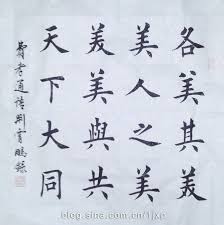 各美其美
美人之美
美美與共
天下大同
費孝通語荆霄鵬錄
blog.sina.com.cn/1jxp